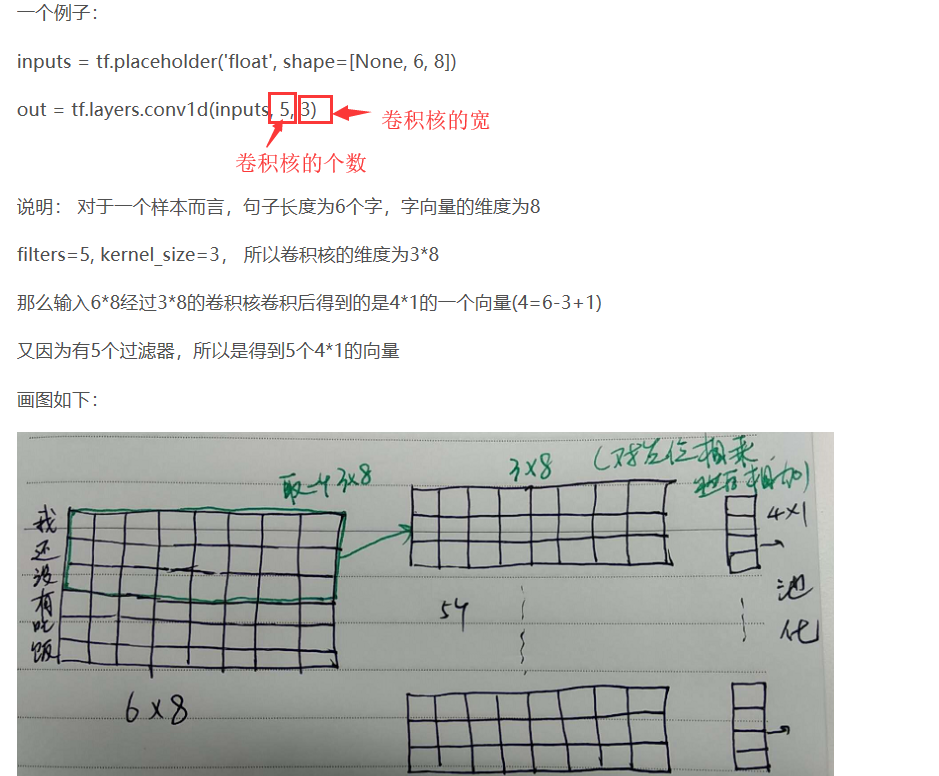 一个例子：
inputs = tf.placeholder('float', shape=[None, 6, 8])
out = tf.layers.conv1d(inputs, 5, 3)
卷积核的宽
卷积核的个数
说明： 对于一个样本而言，句子长度为6个字，字向量的维度为8
filters=5, kernel_size=3， 所以卷积核的维度为3*8
那么输入6*8经过3*8的卷积核卷积后得到的是4*1的一个向量(4=6-3+1)
又因为有5个过滤器，所以是得到5个4*1的向量
画图如下：
取一个3×8
3×8
(对应位相乘
然后相加)
我
还
没
有
吃
饭
4×1
池
化
5个
6×8